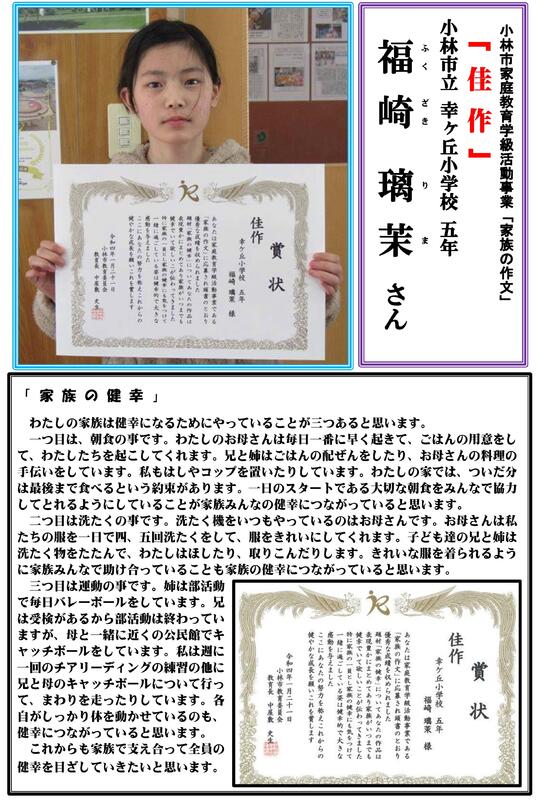 小林市家庭教育学級活動事業「家族の作文」
『佳作』
小林市立 幸ヶ丘小学校 五年
福崎 璃茉 さん
ふくざき りま
賞状
佳作
幸ケ丘小学校 五年
福崎 璃茉 様
あなたは家庭教育学級活動事業である
「家族の作文」に応募され頭書のとおり
優秀な成績を収められました
題材「家族の健幸」についてあなたの作品は
表現豊かにまとめてあり家族がいつまでも
健幸でいて欲しいことが伝わってきました
特に家族の一員として家族の健幸にも気をつけて
一緒に過ごしている姿は健幸的で大きな
感動を与えました
ここにあなたの努力を称えこれからの
健やかな成長を願いこれを賞します
令和四年一月二十一日
小林市教育委員会
教育長 中屋敷 史生
「家族の健幸」
わたしの家族は健幸になるためにやっていることが三つあると思います。
一つ目は、朝食の事です。わたしのお母さんは毎日一番に早く起きて、ごはんの用意をし
て、わたしたちを起こしてくれます。兄と姉はごはんの配ぜんをしたり、お母さんの料理の
手伝いをしています。私もはしやコップを置いたりしています。わたしの家では、ついだ分
は最後まで食べるという約束があります。一日のスタートである大切な朝食をみんなで協力
してとれるようにしていることが家族みんなの健幸につながっていると思います。
二つ目は洗たくの事です。洗たく機をいつもやっているのはお母さんです。お母さんは私
たちの服を一日で四、五回洗たくをして、服をきれいにしてくれます。子ども達の兄と姉は
洗たく物をたたんで、わたしはほしたり、取りこんだりします。きれいな服を着られるよう
に家族みんなで助け合っていることも家族の健幸につながっていると思います。
三つ目は運動の事です。姉は部活動
で毎日バレーボールをしています。兄
は受検があるから部活動は終わってい
ますが、母と一緒に近くの公民館でキ
ャッチボールをしています。私は週に
一回のチアリーディングの練習の他に
兄と母のキャッチボールについて行っ
て、まわりを走ったりしています。各
自がしっかり体を動かせているのも、
健幸につながっていると思います。
これからも家族で支え合って全員の
健幸を目ざしていきたいと思います。
賞状
佳作
幸ケ丘小学校 五年
福崎 璃茉 様
あなたは家庭教育学級活動事業である
「家族の作文」に応募され頭書のとおり
優秀な成績を収められました
題材「家族の健幸」についてあなたの作品は
表現豊かにまとめてあり家族がいつまでも
健幸でいて欲しいことが伝わってきました
特に家族の一員として家族の健幸にも気をつけて
一緒に過ごしている姿は健幸的で大きな
感動を与えました
ここにあなたの努力を称えこれからの
健やかな成長を願いこれを賞します
令和四年一月二十一日
小林市教育委員会
教育長 中屋敷 史生